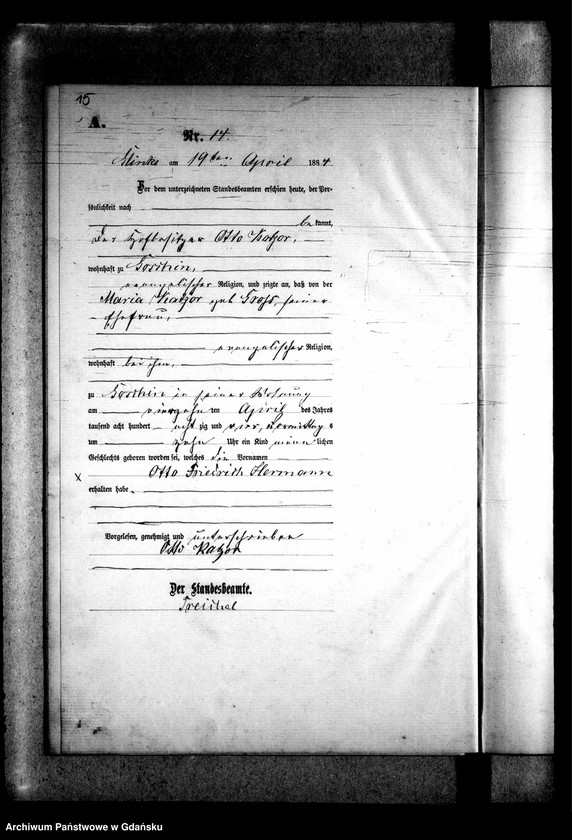 15
A.
Nr. 14.
am 19ten April 1884
Vor dem unterzeichneten Standesbeamten erschien heute, der Per-
sönlichkeit nach
bekannt,
der Hofbesitzer Otto Katzor,
wohnhaft zu
evangelischer Religion, und zeigte an, daß von der
Maria Katzor geb. seiner
Ehefrau,
evangelischer Religion,
wohnhaft bei ihm,
zu in seiner Wohnung
am vierzehnten April des Jahres
tausend acht hundert achtzig und vier, Vormittags
um zehn Uhr ein Kind männlichen
Geschlechts geboren worden sei, welches die Vornamen
X Otto Friedrich Hermann
erhalten habe.
Vorgelesen, genehmigt und unterschrieben
Otto Katzor
Der Standesbeamte.
Archiwum Państwowe w Gdańsku